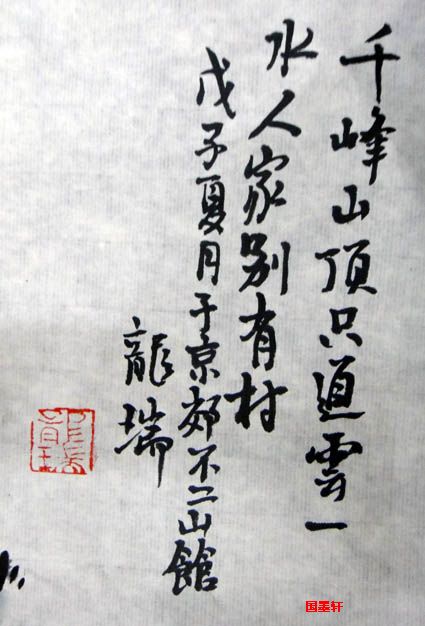 千峰山頂只通雲一
水人家别有村
戊子夏月于京郊不二山館
龍瑞
国墨轩